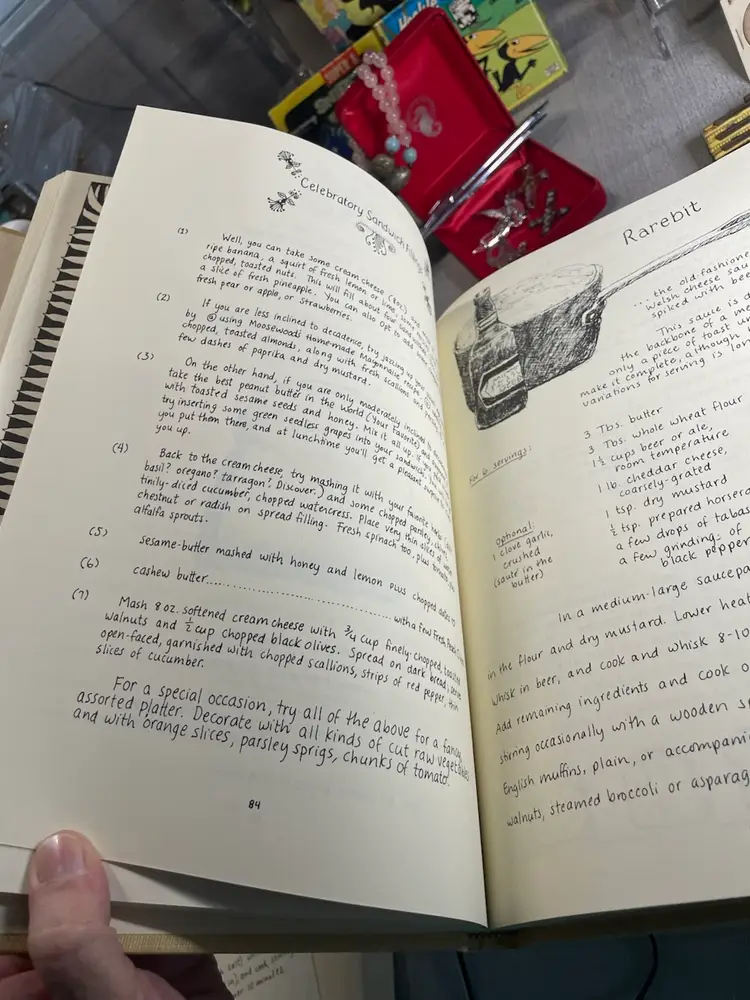 Celebratory Sandwich Filling
(1) Well, you can take some cream cheese (8oz.)
ripe banana, a squirt of fresh lemon or lime
chopped, toasted nuts. This will fill about four
a slice of fresh pineapple. You can also opt to add
fresh pear or apple, or strawberries.
(2) If you are less inclined to decadence, try jazzing up your
by @ using Moosewood's Homemade Mayonnaise recipe
chopped, toasted almonds, along with fresh scallions and
few dashes of paprika and dry mustard.
(3) On the other hand, if you are only moderately inclined
take the best peanut butter in the world (your favorite) and
with toasted sesame seeds and honey. Mix it all up.
try inserting some green seedless grapes into your sandwich
you put them there, and at lunchtime you'll get a pleasant
you up.
(4) Back to the cream cheese, try mashing it with your favorite
basil? oregano? tarragon? Discover.) and some chopped parsley,
tinily-diced cucumber, chopped watercress. Place very thin slices of
chestnut or radish on spread filling. Fresh spinach too, plus
alfalfa sprouts.
(5) sesame-butter mashed with honey and lemon plus chopped dates
(6) cashew butter.................................with a few fresh
(7) Mash 8 oz. softened cream cheese with ¾ cup finely-chopped, toasted
walnuts and ½ cup chopped black olives. Spread on dark bread, serve
open-faced, garnished with chopped scallions, strips of red pepper, thin
slices of cucumber.
For a special occasion, try all of the above for a fancy
assorted platter. Decorate with all kinds of cut raw vegetables
and with orange slices, parsley sprigs, chunks of tomato.
84
Rarebit
...the old-fashione
Welsh cheese sau
spiked with bee
This sauce is
the backbone of a me
only a piece of toast
make it complete, although
variations for serving is lon
For 6 servings:
3 Tbs. butter
3 Tbs. whole wheat flour
1½ cups beer or ale,
room temperature
1 lb. cheddar cheese,
coarsely-grated
1 tsp. dry mustard
½ tsp. prepared horsera
a few drops of tabas
a few grindings of
black pepper
Optional:
1 clove garlic,
crushed
(sauté in the
butter)
In a medium-large saucepa
in the flour and dry mustard. Lower heat
Whisk in beer, and cook and whisk 8-10
Add remaining ingredients and cook o
stirring occasionally with a wooden s
English muffins, plain, or accompani
walnuts, steamed broccoli or asparag